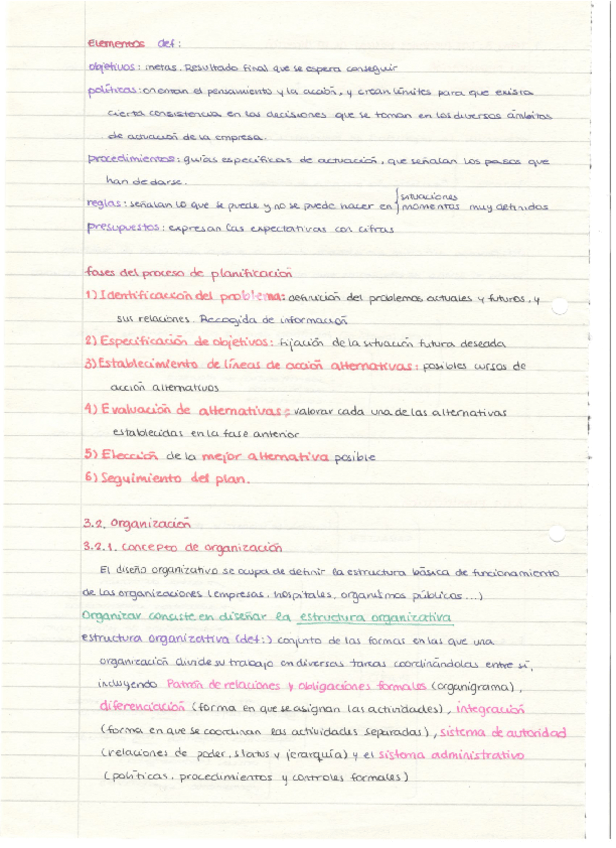 Elementos def:
objetivos: metas. Resultado final que se espera conseguir
políticas: orientan el pensamiento y la acción, y crean límites para que exista
cierta consistencia en las decisiones que se toman en los diversos ámbitos
de actuación de la empresa.
procedimientos: guías específicas de actuación, que señalan los pasos que
han de darse.
reglas: señalan lo que se puede y no se puede hacer en { situaciones
momentos muy definidos
presupuestos: expresan las expectativas con cifras
fases del proceso de planificación
1) Identificación del problema: definición del problemas actuales y futuros, y
sus relaciones. Recogida de información
2) Especificación de objetivos: fijación de la situación futura deseada
3) Establecimiento de líneas de acción alternativas: posibles cursos de
acción alternativos
4) Evaluación de alternativas: valorar cada una de las alternativas
establecidas en la fase anterior
5) Elección de la mejor alternativa posible
6) Seguimiento del plan.
3.2. Organización
3.2.1. Concepto de organización
El diseño organizativo se ocupa de definir la estructura básica de funcionamiento
de las organizaciones (empresas, hospitales, organismos públicos...)
Organizar consiste en diseñar la estructura organizativa
estructura organizativa (def:) conjunto de las formas en las que una
organización divide su trabajo en diversas tareas coordinándolas entre sí,
incluyendo Patrón de relaciones y obligaciones formales (organigrama),
diferenciación (forma en que se asignan las actividades), integración
(forma en que se coordinan las actividades separadas), sistema de autoridad
(relaciones de poder, status y jerarquía) y el sistema administrativo
(políticas, procedimientos y controles formales)